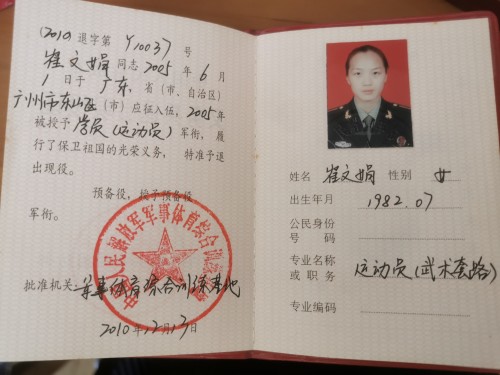 (2010)退字第Y10037号
崔文娟同志2005年6月
1日于广东省(市、自治区)
广州市东山区(市)应征入伍,2005年
被授予学员(运动员)军衔,履
行了保卫祖国的光荣义务,特准予退
出现役。
预备役,授予预备役
军衔。
人民解放军军事体育综合训练
批准机关军事体育综合训练基地
2010年12月13日
姓名崔文娟性别女
出生年月1982.07
公民身份
号码
专业名称
或职务运动员(武术套路)
专业编码